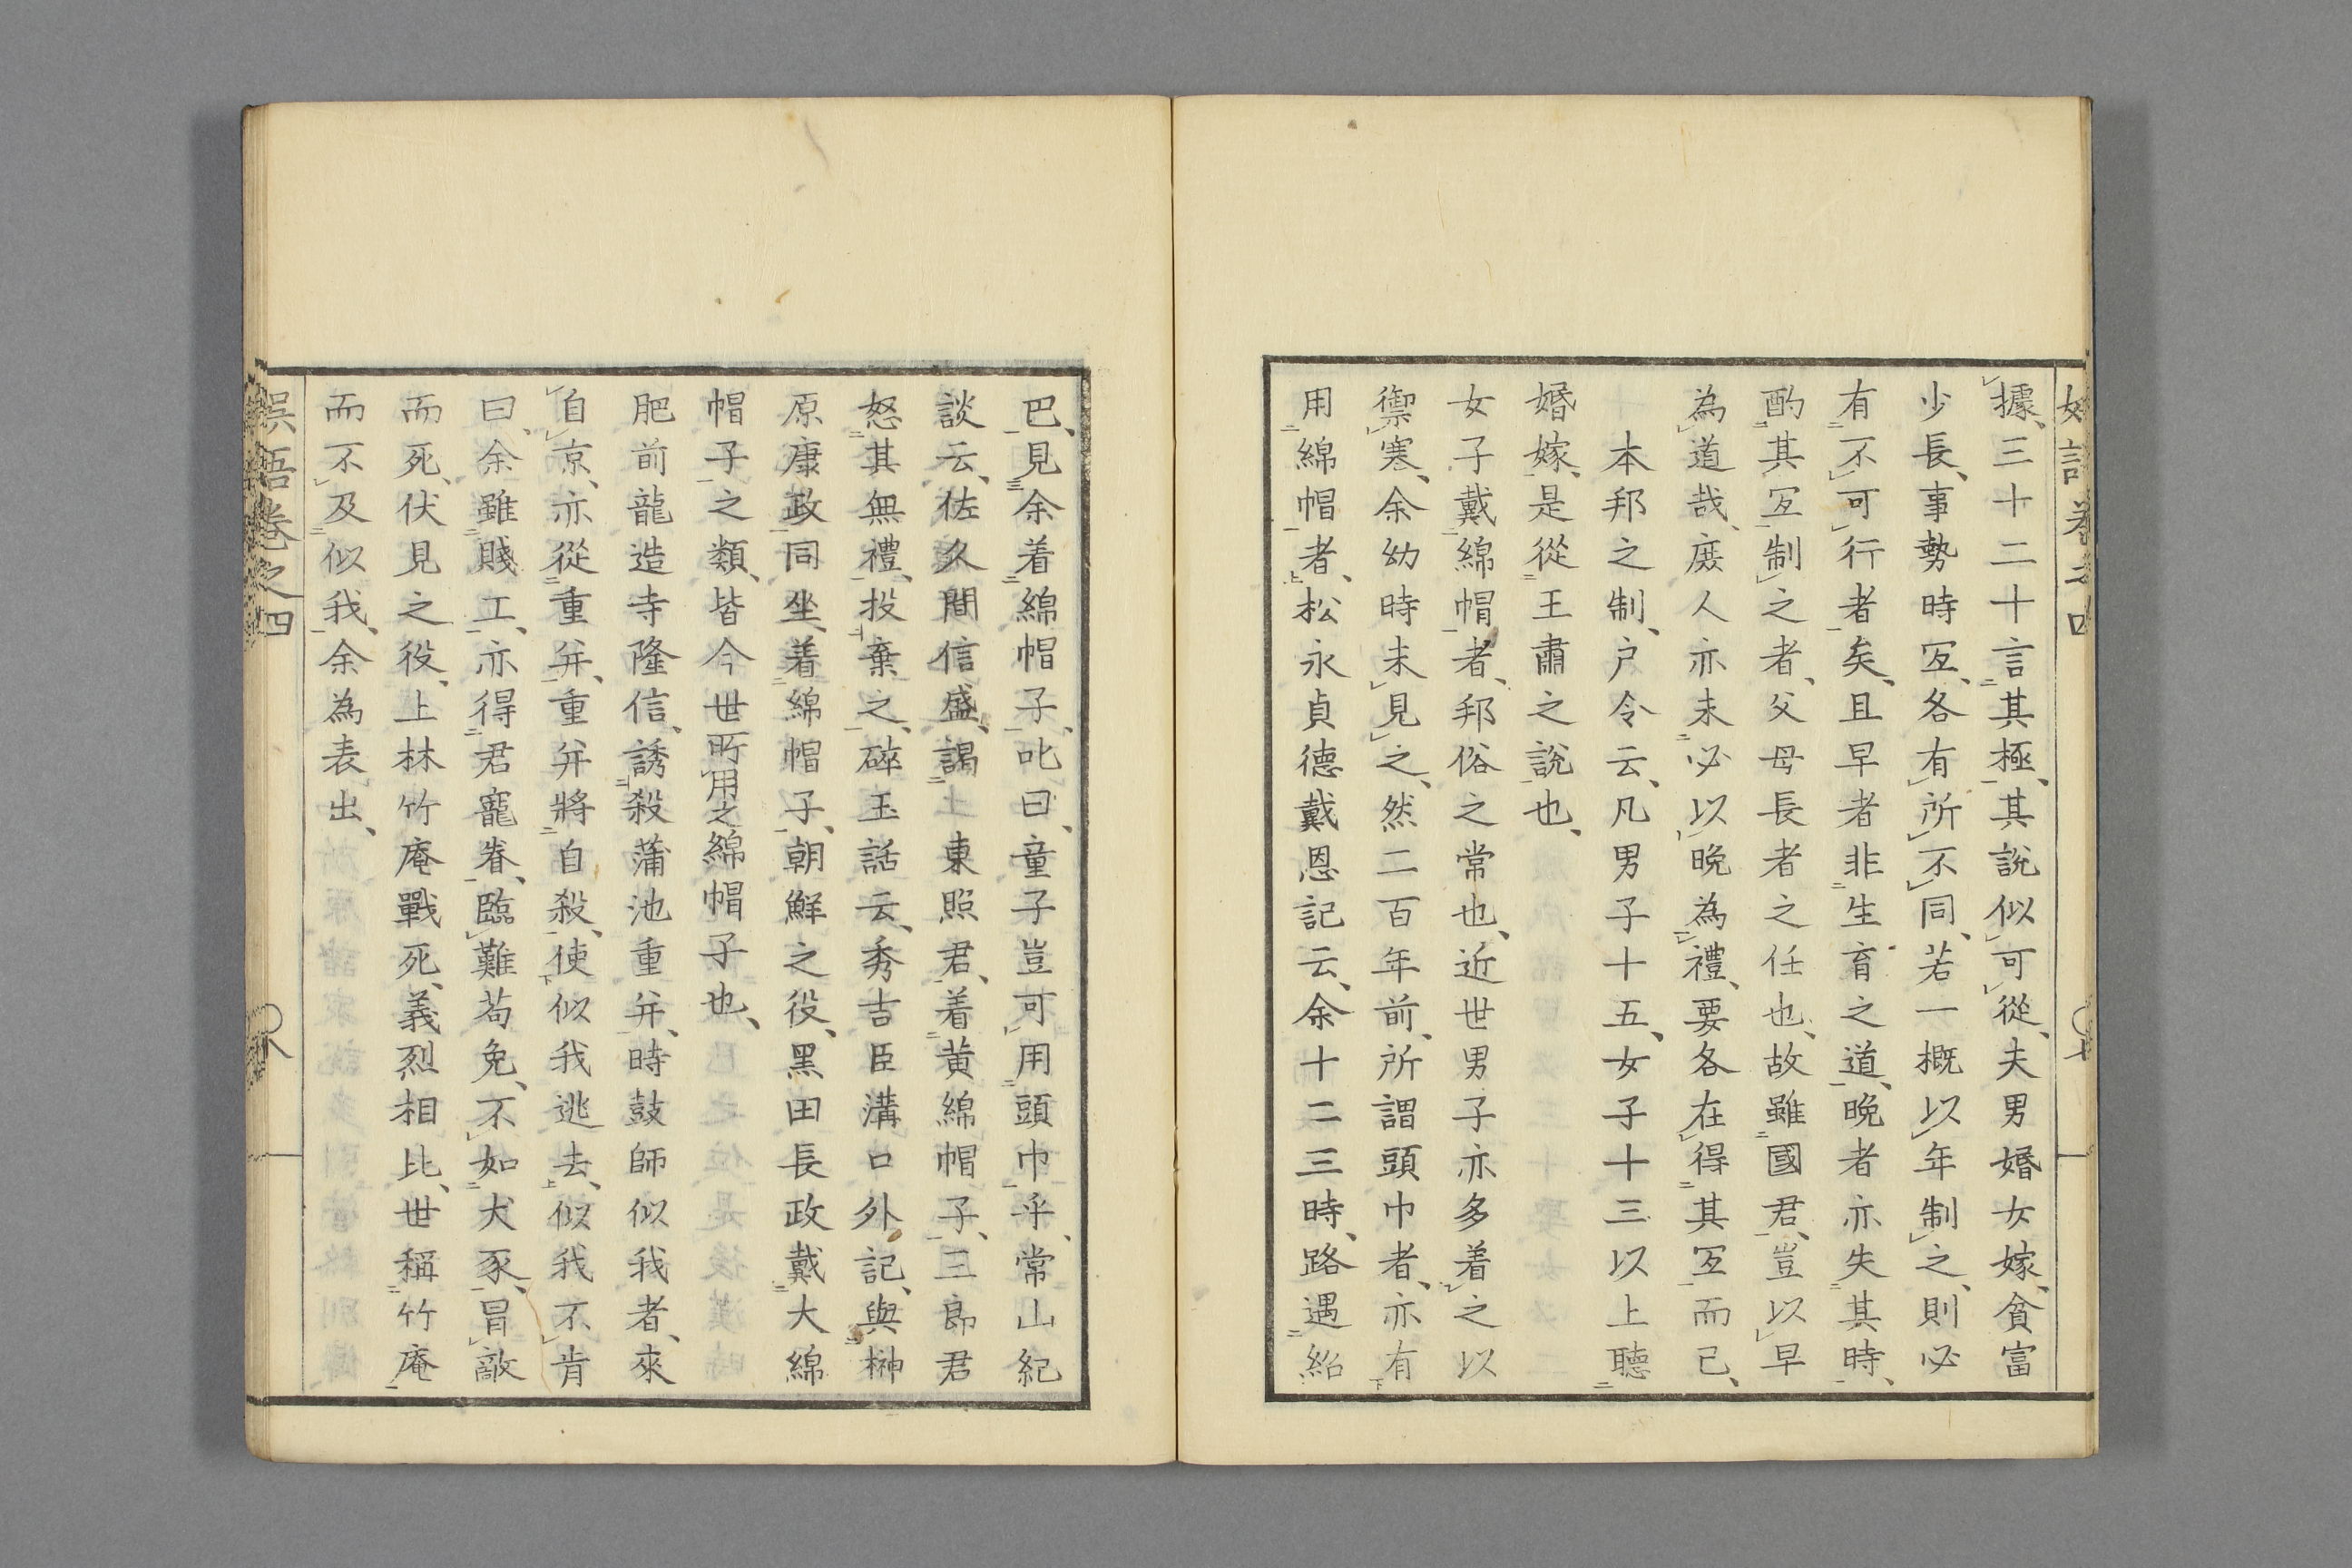 據、三十二十言其極、其說似可從、夫男婚女嫁、貧富
少長、事勢時冝、各有所不同、若一概以年制之、則必
有不可行者矣、且早者非生育之道、晩者亦失其時、
酌其冝制之者、父母長者之任也、故雖國君、豈以早
為道哉、庻人亦未必以晩為禮、要各在得其冝而已、
本邦之制、户令云、凡男子十五、女子十三以上聽
婚嫁、是從王肅之說也、
女子戴綿帽者、邦俗之常也、近世男子亦多着之以
禦寒、余幼時未見之、然二百年前、所謂頭巾者、亦有
用綿帽者、松永貞德戴恩記云、余十二三時、路遇紹
巴、見余着綿帽子、叱曰、童子豈可用頭巾乎、常山紀
談云、佐久間信盛、謁東照君、着黄綿帽子、三郎君
怒其無禮、投棄之、碎玉話云、秀吉臣溝口外記、與榊
原康政同坐、着綿帽子、朝鮮之役、黑田長政戴大綿
帽子之類、皆今世所用之綿帽子也、
肥前龍造寺隆信、誘殺蒲池重并、時鼓師似我者、來
自京、亦從重并、重并將自殺、使似我逃去、似我不肯
曰、余雖賤工、亦得君寵眷、臨難苟免、不如犬豕、冒敵
而死、伏見之役、上林竹庵戰死、義烈相比、世稱竹庵
而不及似我、余為表出、
梧卷之四